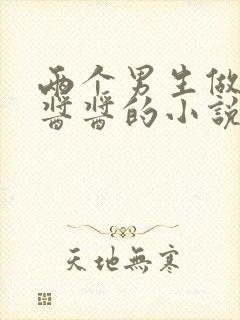 两个男生做
酱酱的小説
天地無寒